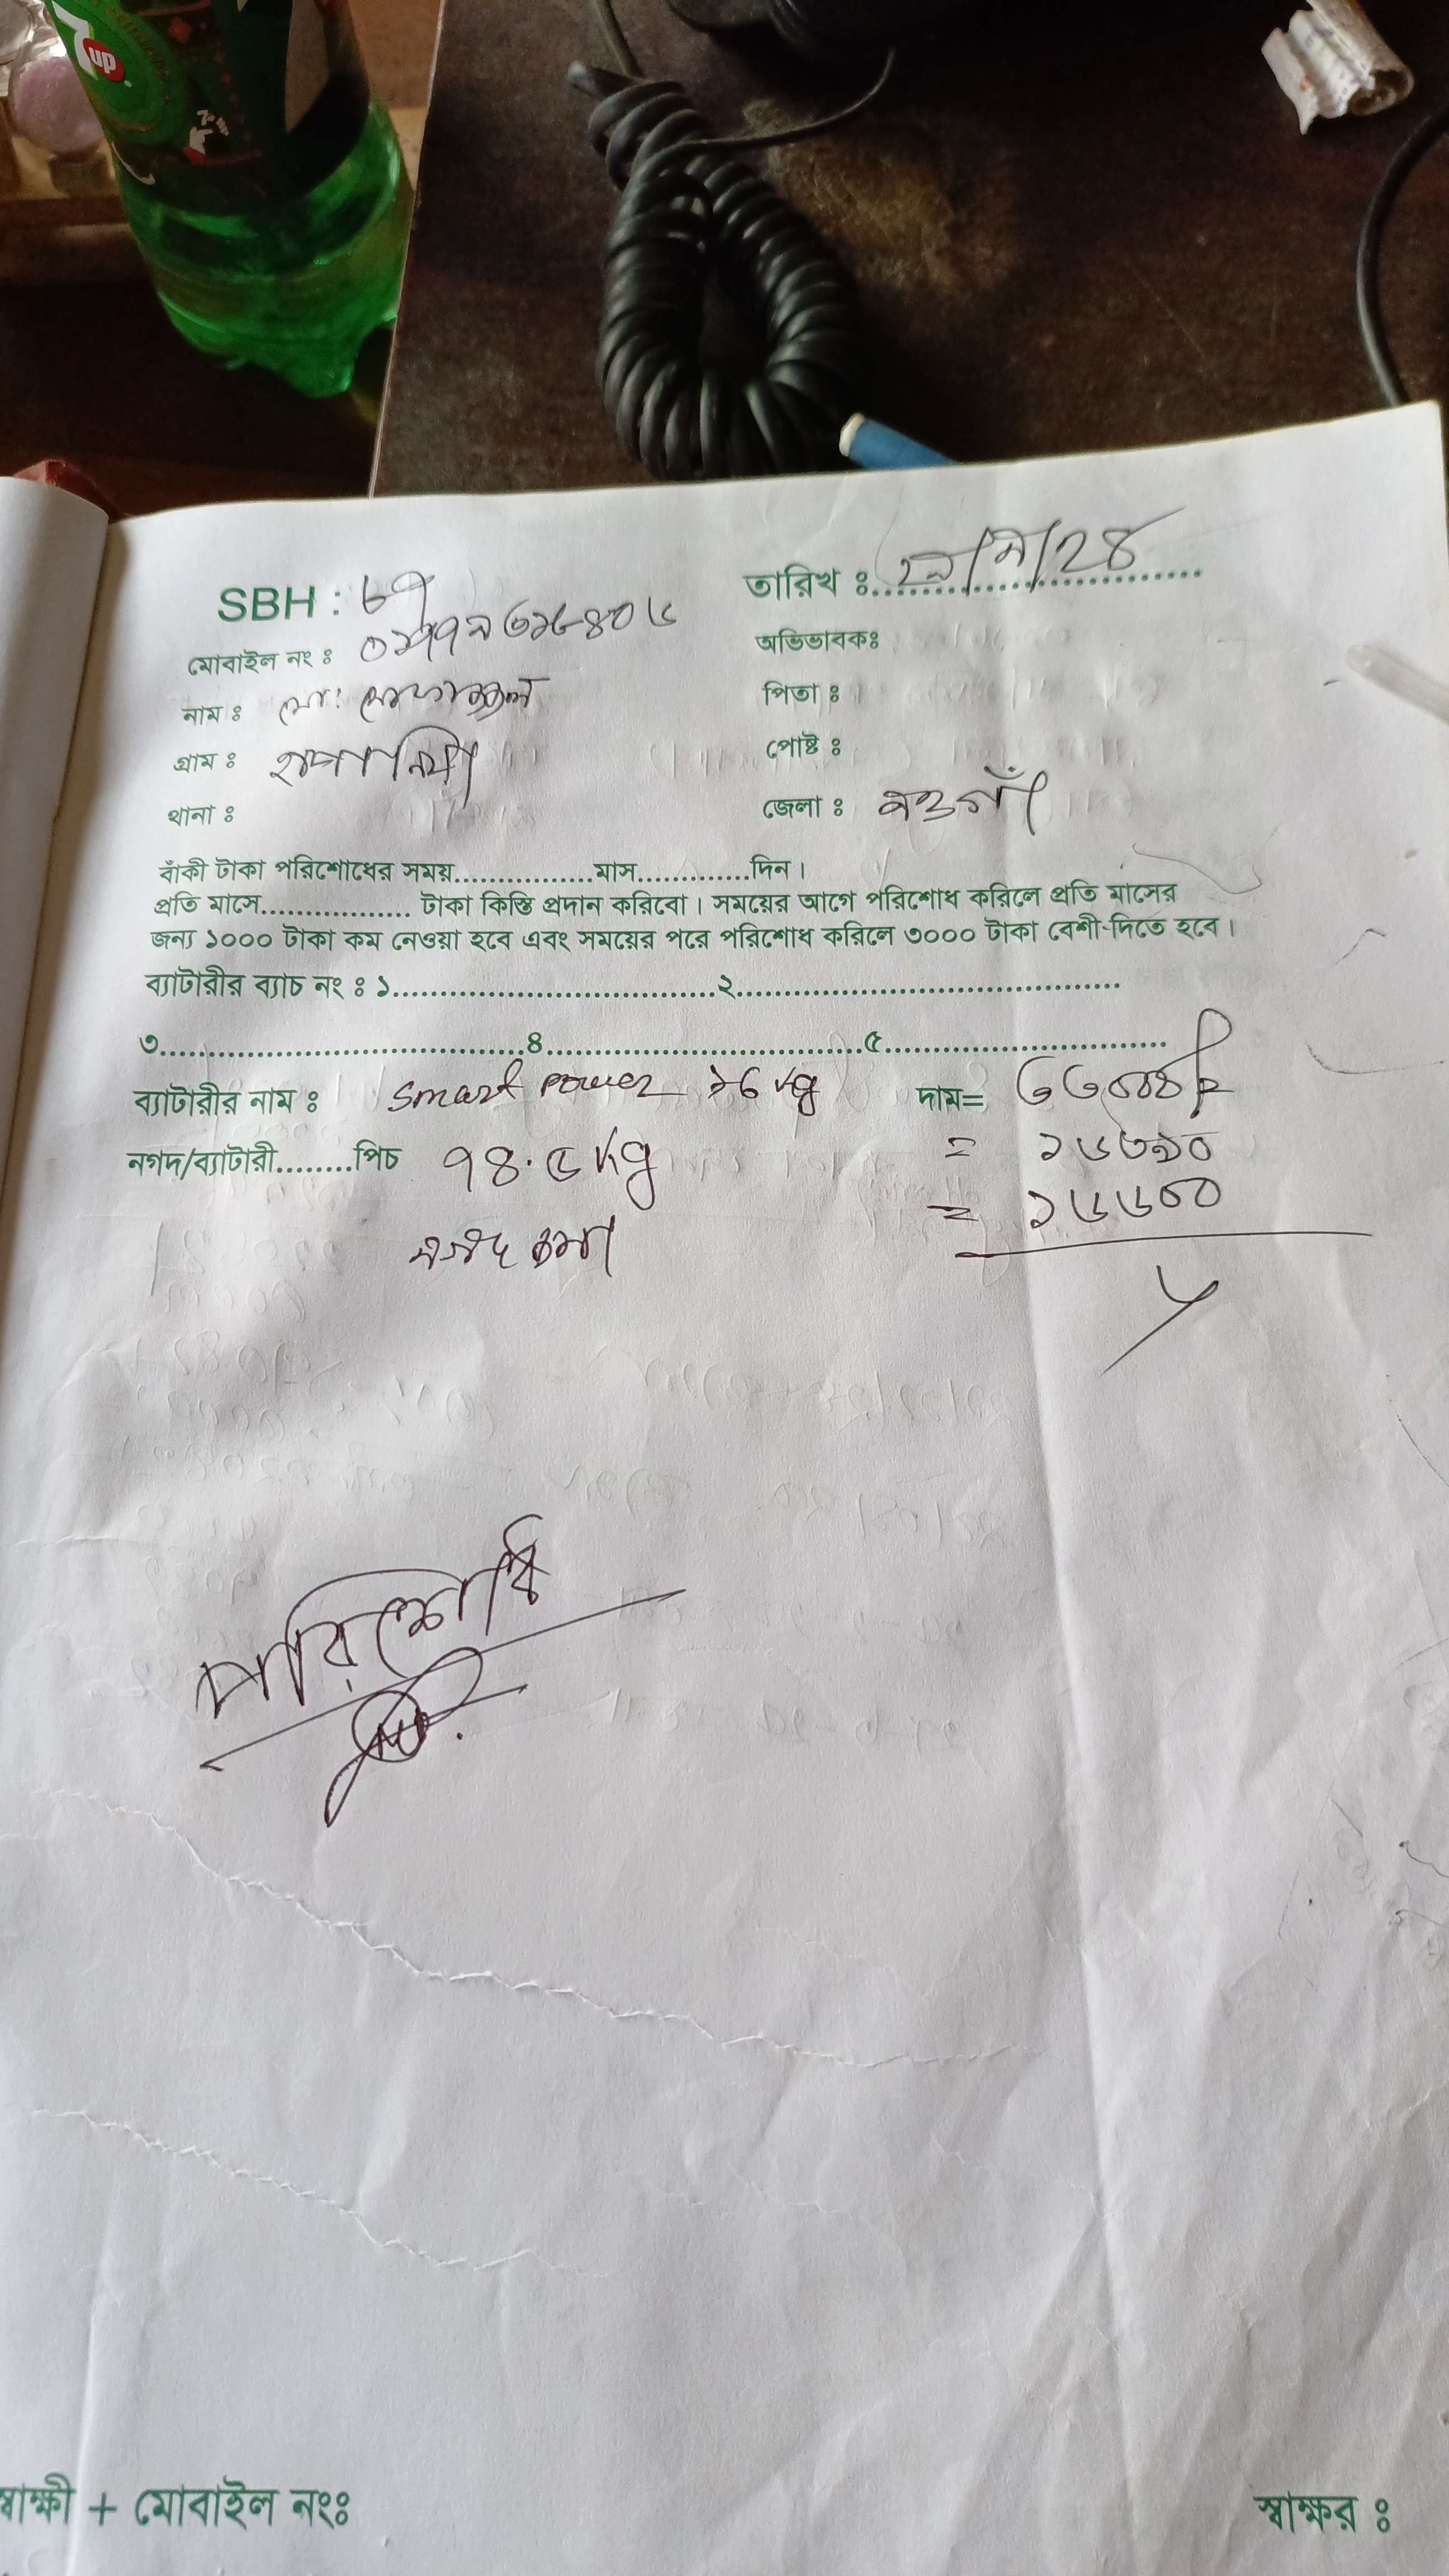 7up
SBH : ৮৭
তারিখ ঃ ২৯/৯/24
মোবাইল নং ঃ ০১৭৭৯৩১৮৪০৬
অভিভাবকঃ
নাম ঃ মো:
পিতা ঃ
গ্রাম ঃ
পোষ্ট ঃ
থানা ঃ
জেলা ঃ নওগাঁ
বাঁকী টাকা পরিশোধের সময়................মাস.............দিন।
প্রতি মাসে................. টাকা কিস্তি প্রদান করিবো। সময়ের আগে পরিশোধ করিলে প্রতি মাসের
জন্য ১০০০ টাকা কম নেওয়া হবে এবং সময়ের পরে পরিশোধ করিলে ৩০০০ টাকা বেশী-দিতে হবে।
ব্যাটারীর ব্যাচ নং ঃ ১.....................................২............................................
৩..........................................৪.....................................৫.................................
ব্যাটারীর নাম ঃ Smart Power 26 kg দাম=
নগদ/ব্যাটারী.........পিচ ৭৪.৫ kg = ১৬৩৯০
নগদ জমা = ১৬৬০০
পরিশোধ
স্বাক্ষী + মোবাইল নংঃ
স্বাক্ষর ঃ